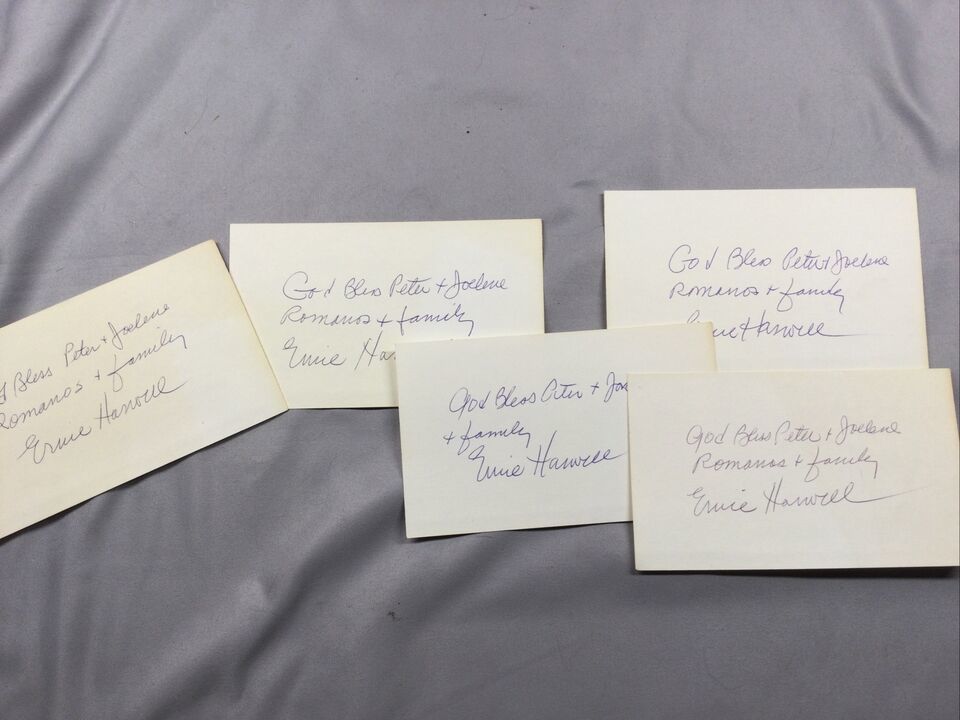 Bless Peter + Joelene
Romanos + family
Ernie Harwell
God Bless Peter + Joelene
Romanos + family
Ernie Ha
God Bless Peter + Jo
+ family
Ernie Harwell
God Bless Peter + Joelene
Romanos + family
Ernie Harwell
God Bless Peter + Joelene
Romanos + family
Ernie Harwell